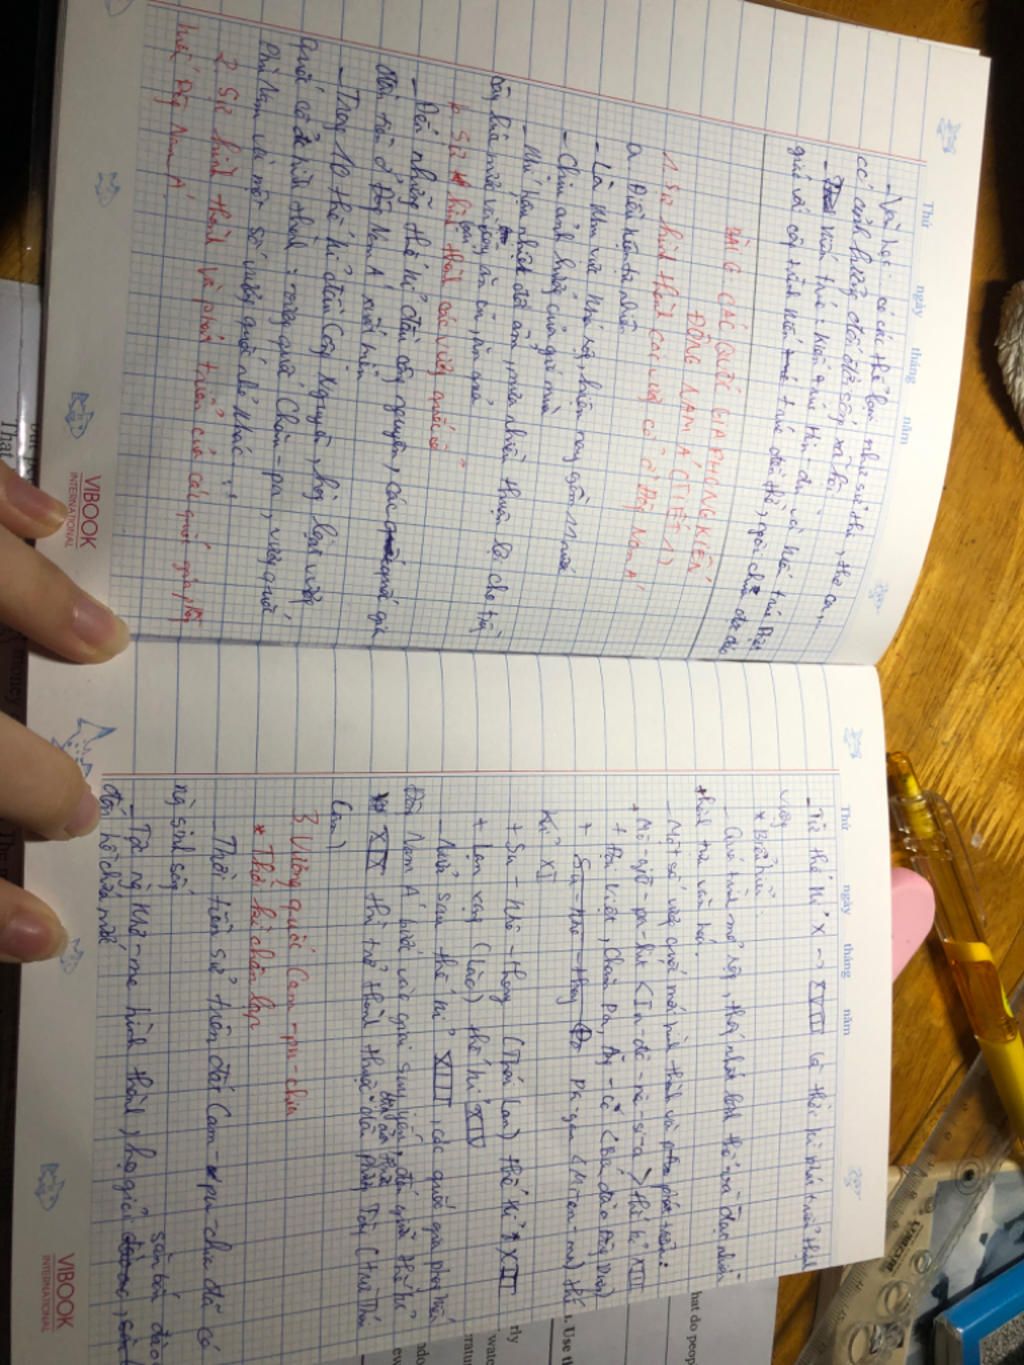 Thứ ngày tháng năm
- Văn học: có các thể loại như sử thi, thơ ca,
có ảnh hưởng đến
- Kiến trúc: Kiến trúc Hin đu và kiến trúc Phật
giáo với công trình kiến trúc đền thờ, ngôi chùa
BÀI 6 CÁC QUỐC GIA PHONG KIẾN
ĐÔNG NAM Á (TIẾT 1)
1. Sự hình thành các vương quốc cổ ở Đông Nam Á
a. Điều kiện tự nhiên
- Là khu vực khá rộng, hiện nay gồm 11 nước
- Chịu ảnh hưởng của gió mùa
- Khí hậu nhiệt đới ẩm, mưa nhiều thuận lợi cho trồng
cây lúa nước và cây ăn củ, ăn quả
b. Sự hình thành các vương quốc cổ
- Đến những thế kỉ đầu công nguyên, các quốc gia
đầu tiên ở Đông Nam Á xuất hiện
- Trong 10 thế kỉ đầu Công Nguyên, hàng loạt vương
quốc cổ đã hình thành: vương quốc Chăm-pa, vương quốc
Phù Nam và một số vương quốc nhỏ khác...
2. Sự hình thành và phát triển của các quốc gia phong
kiến Đông Nam Á
VIBOOK
INTERNATIONAL
Thứ ngày tháng năm
- Từ thế kỉ X → XVIII là thời kì phát triển thịnh
vượng
* Biểu hiện:
- Quá trình mở rộng, thống nhất lãnh thổ và đạt nhiều
thành tựu văn hoá.
- Một số vương quốc mới hình thành và phát triển:
+ Mô-giô-pa-hit <In-đô-nê-si-a> thế kỉ XIII
+ Đại Việt, Chăm Pa, Ăng-co <Bán đảo Đông Dương>
+ Pa-gan <Mi-an-ma> thế
kỉ XI
+ Su-khô-thay (Thái Lan) thế kỉ XIII
+ Lan xang (Lào) thế kỉ XIV
- Nửa sau thế kỉ XVIII, các quốc gia phong kiến
Đông Nam Á bước vào giai đoạn suy yếu, đến giữa thế kỉ
XIX thì trở thành thuộc địa phương Tây (trừ Thái
Lan)
3. Vương quốc Cam-pu-chia
* Thời kì chân lạp
- Thời tiền sử trên đất Cam-pu-chia đã có
ng sinh sống
- Tộc ng Khơ-me hình thành, họ giỏi săn bắn, đào
đắp hồ chứa nước
VIBOOK
INTERNATIONAL
hat do peop
1. Use th
rly